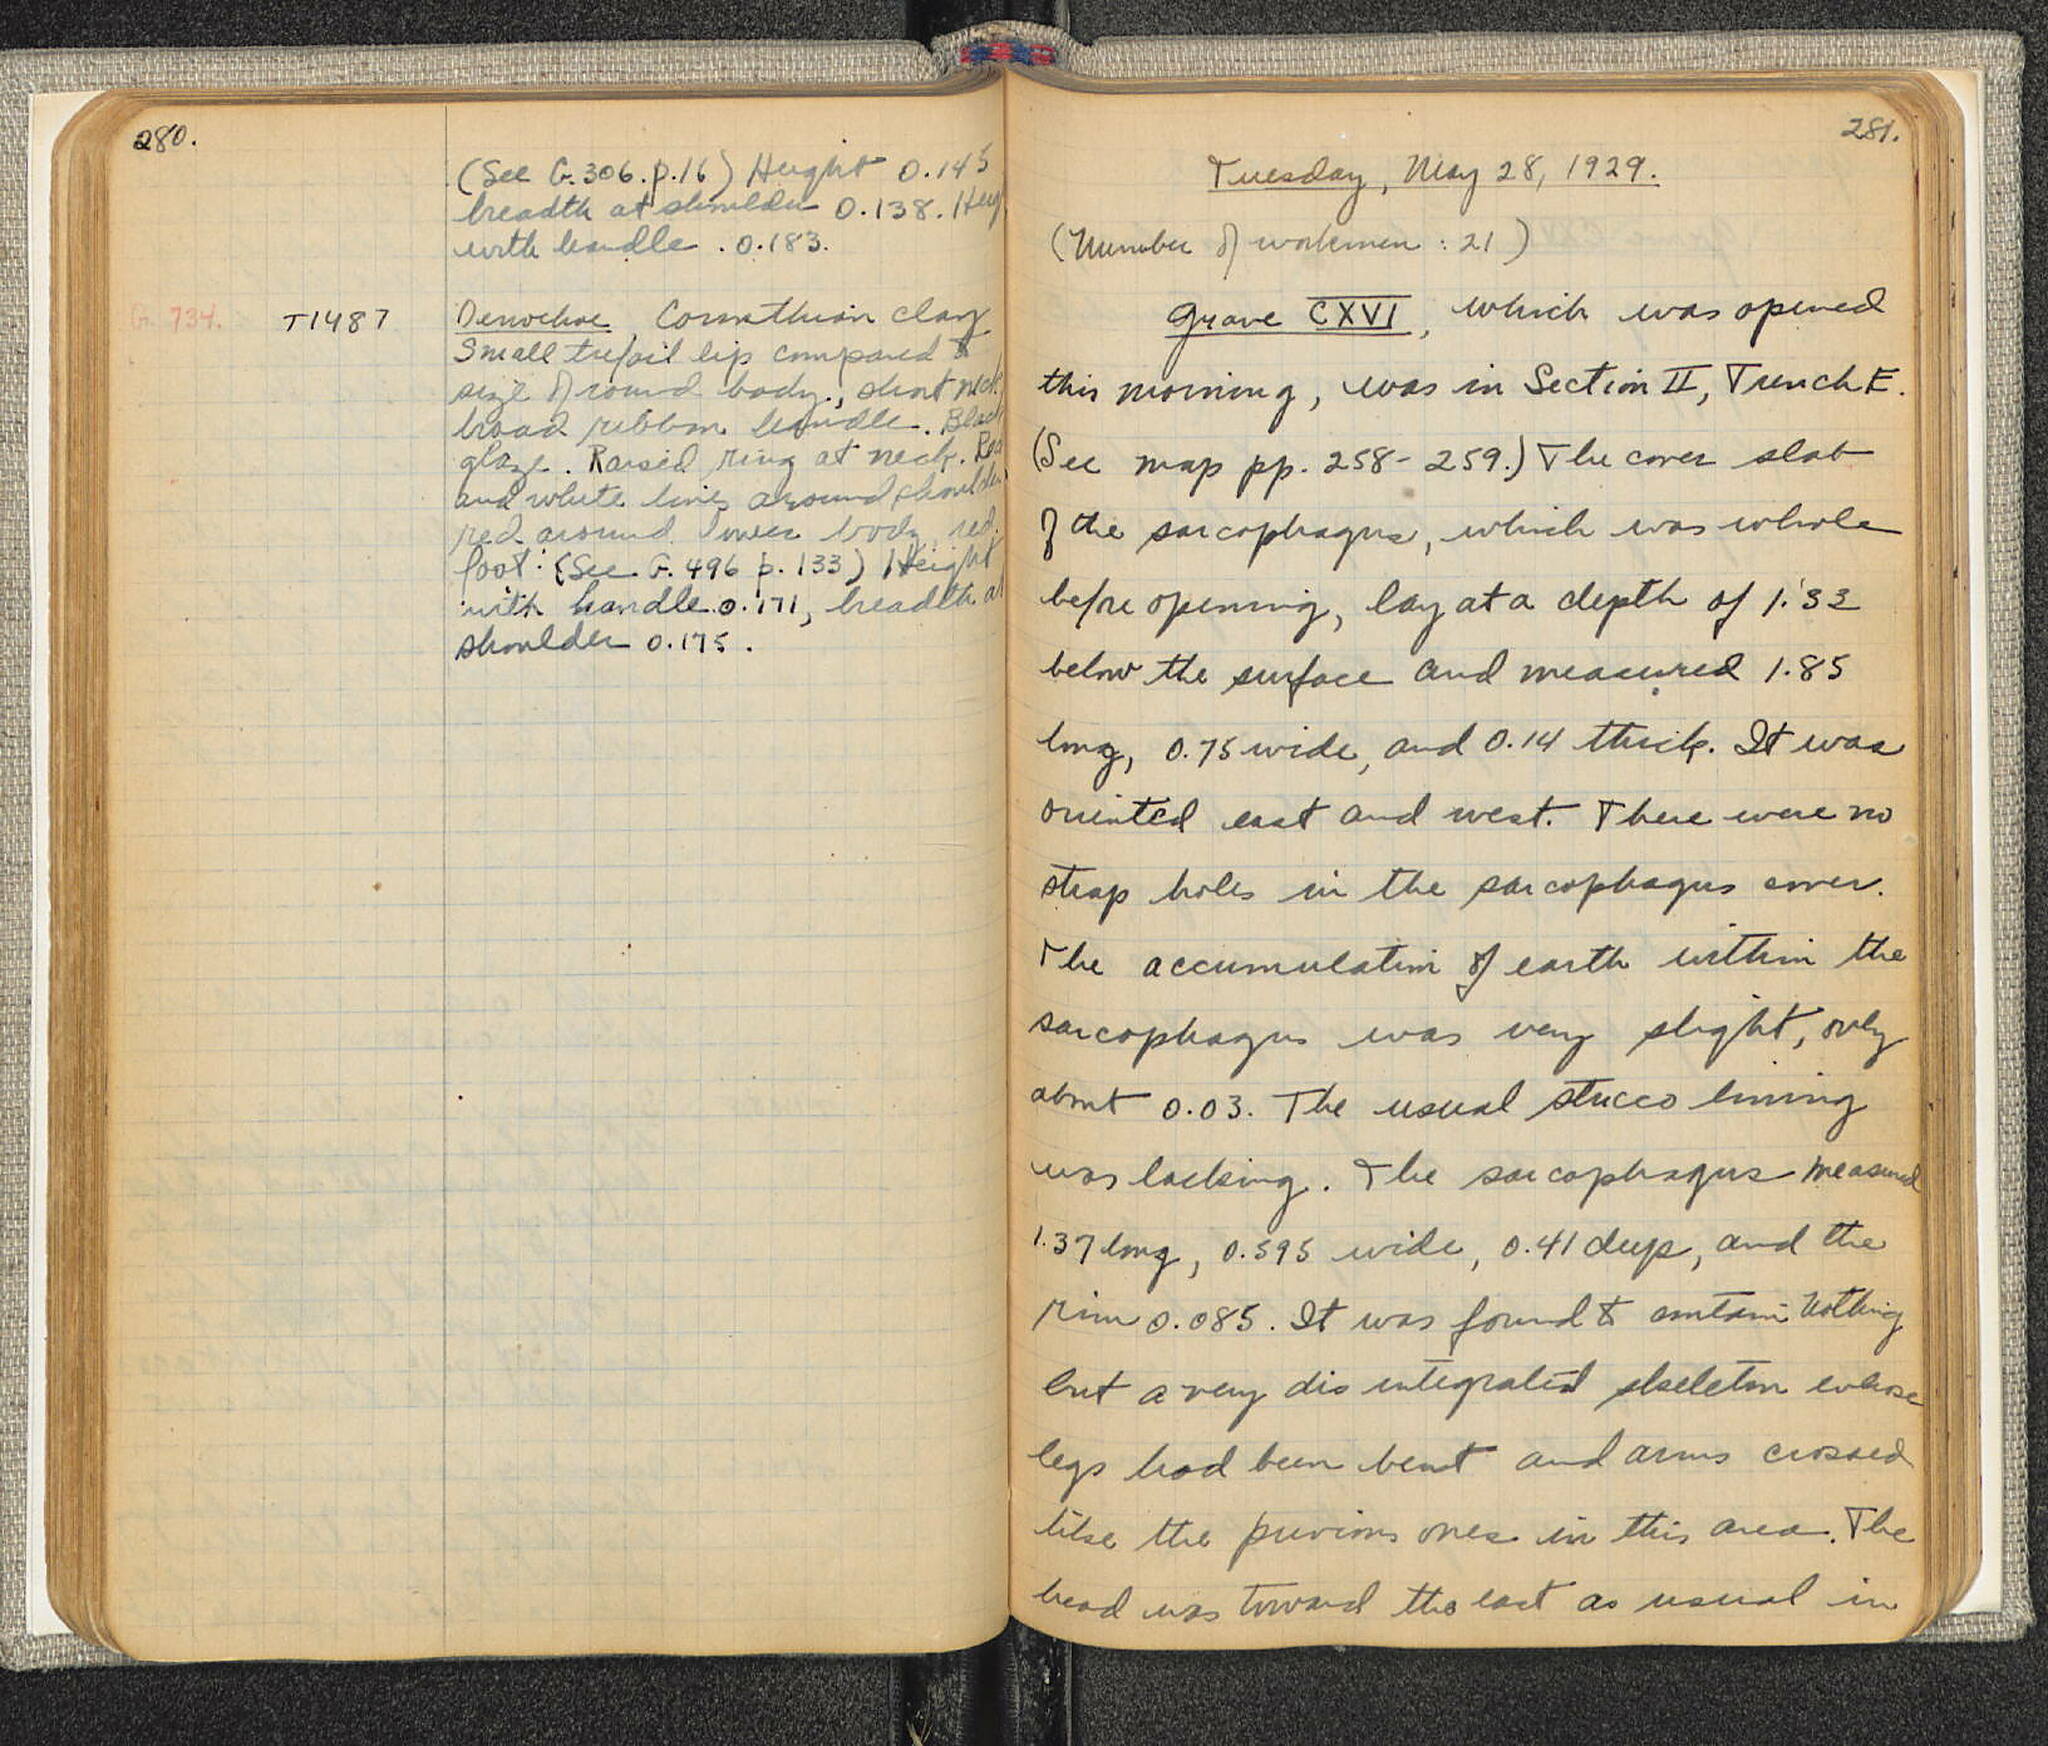 280.
(See G. 306. p. 16) Height 0.145
breadth at shoulder 0.138. Heig
with handle . 0.183.
G. 734. T1487 Oenochoe, Corinthian clay
Small trefoil lip compared to
size of round body, short neck
broad ribbon handle. Black
glaze. Raised ring at neck. Red
and white lines around shoulder
red around lower body, red
foot. (See G. 496 p. 133) Height
with handle 0.171, breadth at
shoulder 0.175.
281.
Tuesday, May 28, 1929.
(Number of workmen : 21)
Grave CXVI, which was opened
this morning, was in Section II, Trench E.
(See map pp. 258-259.) The cover slab
of the sarcophagus, which was whole
before opening, lay at a depth of 1.33
below the surface and measured 1.85
long, 0.75 wide, and 0.14 thick. It was
oriented east and west. There were no
strap holes in the sarcophagus cover.
The accumulation of earth within the
sarcophagus was very slight, only
about 0.03. The usual stucco lining
was lacking. The sarcophagus measured
1.37 long, 0.595 wide, 0.41 deep, and the
rim 0.085. It was found to contain nothing
but a very disintegrated skeleton whose
legs had been bent and arms crossed
like the previous ones in this area. The
head was toward the east as usual in